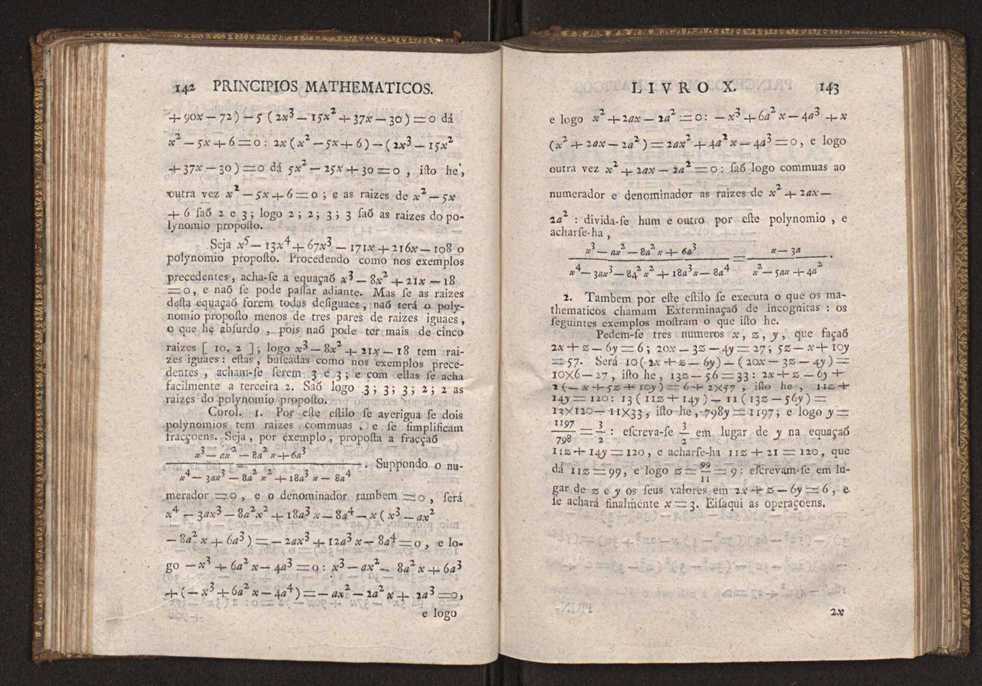 142 PRINCIPIOS MATHEMATICOS.
+ 90x — 72) — 5 (2x³ — 15x² + 37x — 30) = 0 dá
x² — 5x + 6 = 0 : 2x (x² — 5x + 6) — (2x³ — 15x²
+ 37x — 30) = 0 dá 5x² — 25x + 30 = 0 , iſto he ,
outra vez x² — 5x + 6 = 0 ; e as raizes de x² — 5x
+ 6 ſaõ 2 e 3 ; logo 2 ; 2 ; 3 ; 3 ſaõ as raizes do po-
lynomio propoſto.
Seja x⁵ — 13x⁴ + 67x³ — 171x + 216x — 108 o
polynomio propoſto. Procedendo como nos exemplos
precedentes , acha-ſe a equaçaõ x³ — 8x² + 21x — 18
= 0 , e naõ ſe pode paſſar adiante. Mas ſe as raizes
deſta equaçaõ forem todas deſiguaes , naõ terá o poly-
nomio propoſto menos de tres pares de raizes iguaes ,
o que he abſurdo , pois naõ pode ter mais de cinco
raizes [ 10. 2 ] ; logo x³ — 8x² + 21x — 18 tem rai-
zes iguaes : eſtas , buſcadas como nos exemplos prece-
dentes , acham-ſe ſerem 3 e 3 ; e com eſtas ſe acha
facilmente a terceira 2. Saõ logo 3 ; 3 ; 3 ; 2 ; 2 as
raizes do polynomio propoſto.
Corol. 1. Por eſte eſtilo ſe averigua ſe dois
polynomios tem raizes commuas , e ſe ſimplificam
fracçoens. Seja , por exemplo , propoſta a fracçaõ
x³ — ax² — 8a² x + 6a³
. Suppondo o nu-
x⁴ — 3ax³ — 8a² x² + 18a³ x — 8a⁴
merador = 0 , e o denominador tambem = 0 , ſerá
x⁴ — 3ax³ — 8a²x² + 18a³ x — 8a⁴ — x ( x³ — ax²
— 8a² x + 6a³ ) = — 2ax³ + 12a³ x — 8a⁴ = 0 , e lo-
go — x³ + 6a² x — 4a³ = 0 : x³ — ax² — 8a² x + 6a³
+ (— x³ + 6a² x — 4a⁴) = — ax² — 2a² x + 2a³ = 0 ,
e logo
LIVRO X. 143
e logo x² + 2ax — 2a² = 0 : — x³ + 6a² x — 4a³ + x
(x² + 2ax — 2a²) = 2ax² + 4a² x — 4a³ = 0 , e logo
outra vez x² + 2ax — 2a² = 0 : ſaõ logo commuas ao
numerador e denominador as raizes de x² + 2ax —
2a² : divida-ſe hum e outro por eſte polynomio , e
acharſe-ha ,
x³ — ax² — 8a² x + 6a³ = x — 3a
x⁴ — 3ax³ — 8a² x² + 18a³ x — 8a⁴ x² — 5ax + 4a² .
2. Tambem por eſte eſtilo ſe executa o que os ma-
thematicos chamam Exterminaçaõ de incognitas : os
ſeguintes exemplos moſtram o que iſto he.
Pedem-ſe tres numeros x , z , y , que façaõ
2x + z — 6y = 6 ; 20x — 3z — 4y = 27 ; 5z — x + 10y
= 57. Será 10 (2x + z — 6y) — (20x — 3z — 4y) =
10X6 — 27 , iſto he , 13z — 56 = 33 : 2x + z — 6y +
2 (— x + 5z + 10y) = 6 + 2X57 , iſto he , 11z +
14y = 120 : 13 (11z + 14y) — 11 (13z — 56y) =
13X120 — 11X33 , iſto he , 798y = 1197 ; e logo y =
1197/798 = 3/2 : eſcreva-ſe 3/2 em lugar de y na equaçaõ
11z + 14y = 120 , e acharſe-ha 11z + 21 = 120 , que
dá 11z = 99 , e logo z = 99/11 = 9 : eſcrevam-ſe em lu-
gar de z e y os ſeus valores em 2x + z — 6y = 6 , e
ſe achará finalmente x = 3. Eiſaqui as operaçoens.
2x